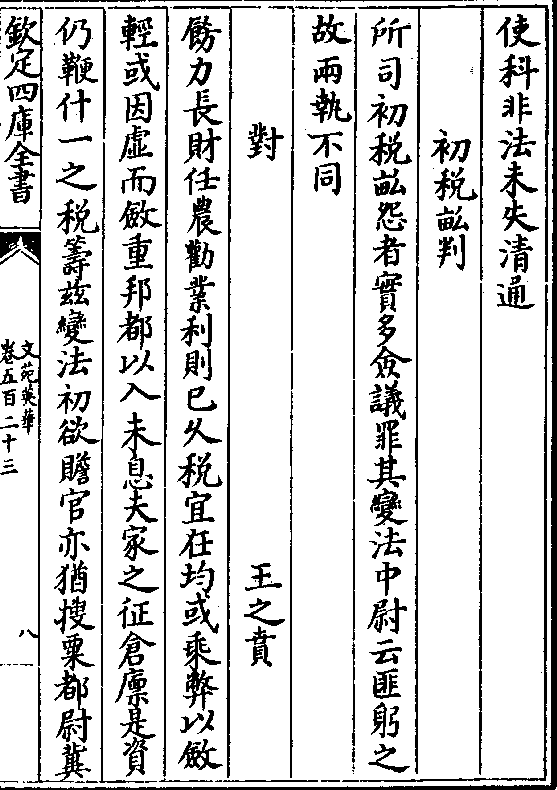 使科非法未失清通
初稅畝判
所司初稅畝怨者實多僉議罪其變法中尉云匪躬之
故兩執不同
對 王之賁
飭力長財任農勸業利則已久稅宜在均或乘弊以斂
輕或因虛而斂重邦都以入未息夫家之征倉廩是資
仍鞭什一之稅籌茲變法初欲贍官亦猶搜粟都尉冀
欽定四庫全書
文苑英華
卷五百二十三
八